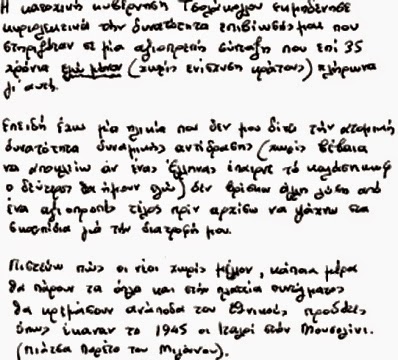 Η κατοχική κυβέρνηση Τσολάκογλου εκμηδένισε
κυριολεκτικά την δυνατότητα επιβίωσής μου που
στηριζόταν σε μια αξιοπρεπή σύνταξη που επί 35
χρόνια εγώ μόνον (χωρίς ενίσχυση κράτους) πλήρωνα
γι αυτή.
Επειδή έχω μια ηλικία που δεν μου δίνει την ατομική
δυνατότητα δυναμικής αντίδρασης (χωρίς βέβαια
να αποκλείω αν ένας Έλληνας έπαιρνε το καλάσνικωφ
ο δεύτερος θα ήμουν εγώ) δεν βρίσκω άλλη λύση από
ένα αξιοπρεπές τέλος πριν αρχίσω να ψάχνω στα
σκουπίδια για την διατροφή μου.
Πιστεύω πως οι νέοι χωρίς μέλλον, κάποια μέρα
θα πάρουν τα όπλα και στην πλατεία συντάγματος
θα κρεμάσουν ανάποδα τους εθνικούς προδότες
όπως έκαναν το 1945 οι Ιταλοί στον Μουσολίνι.
(πιάτσα Λορέτο του Μιλάνου).